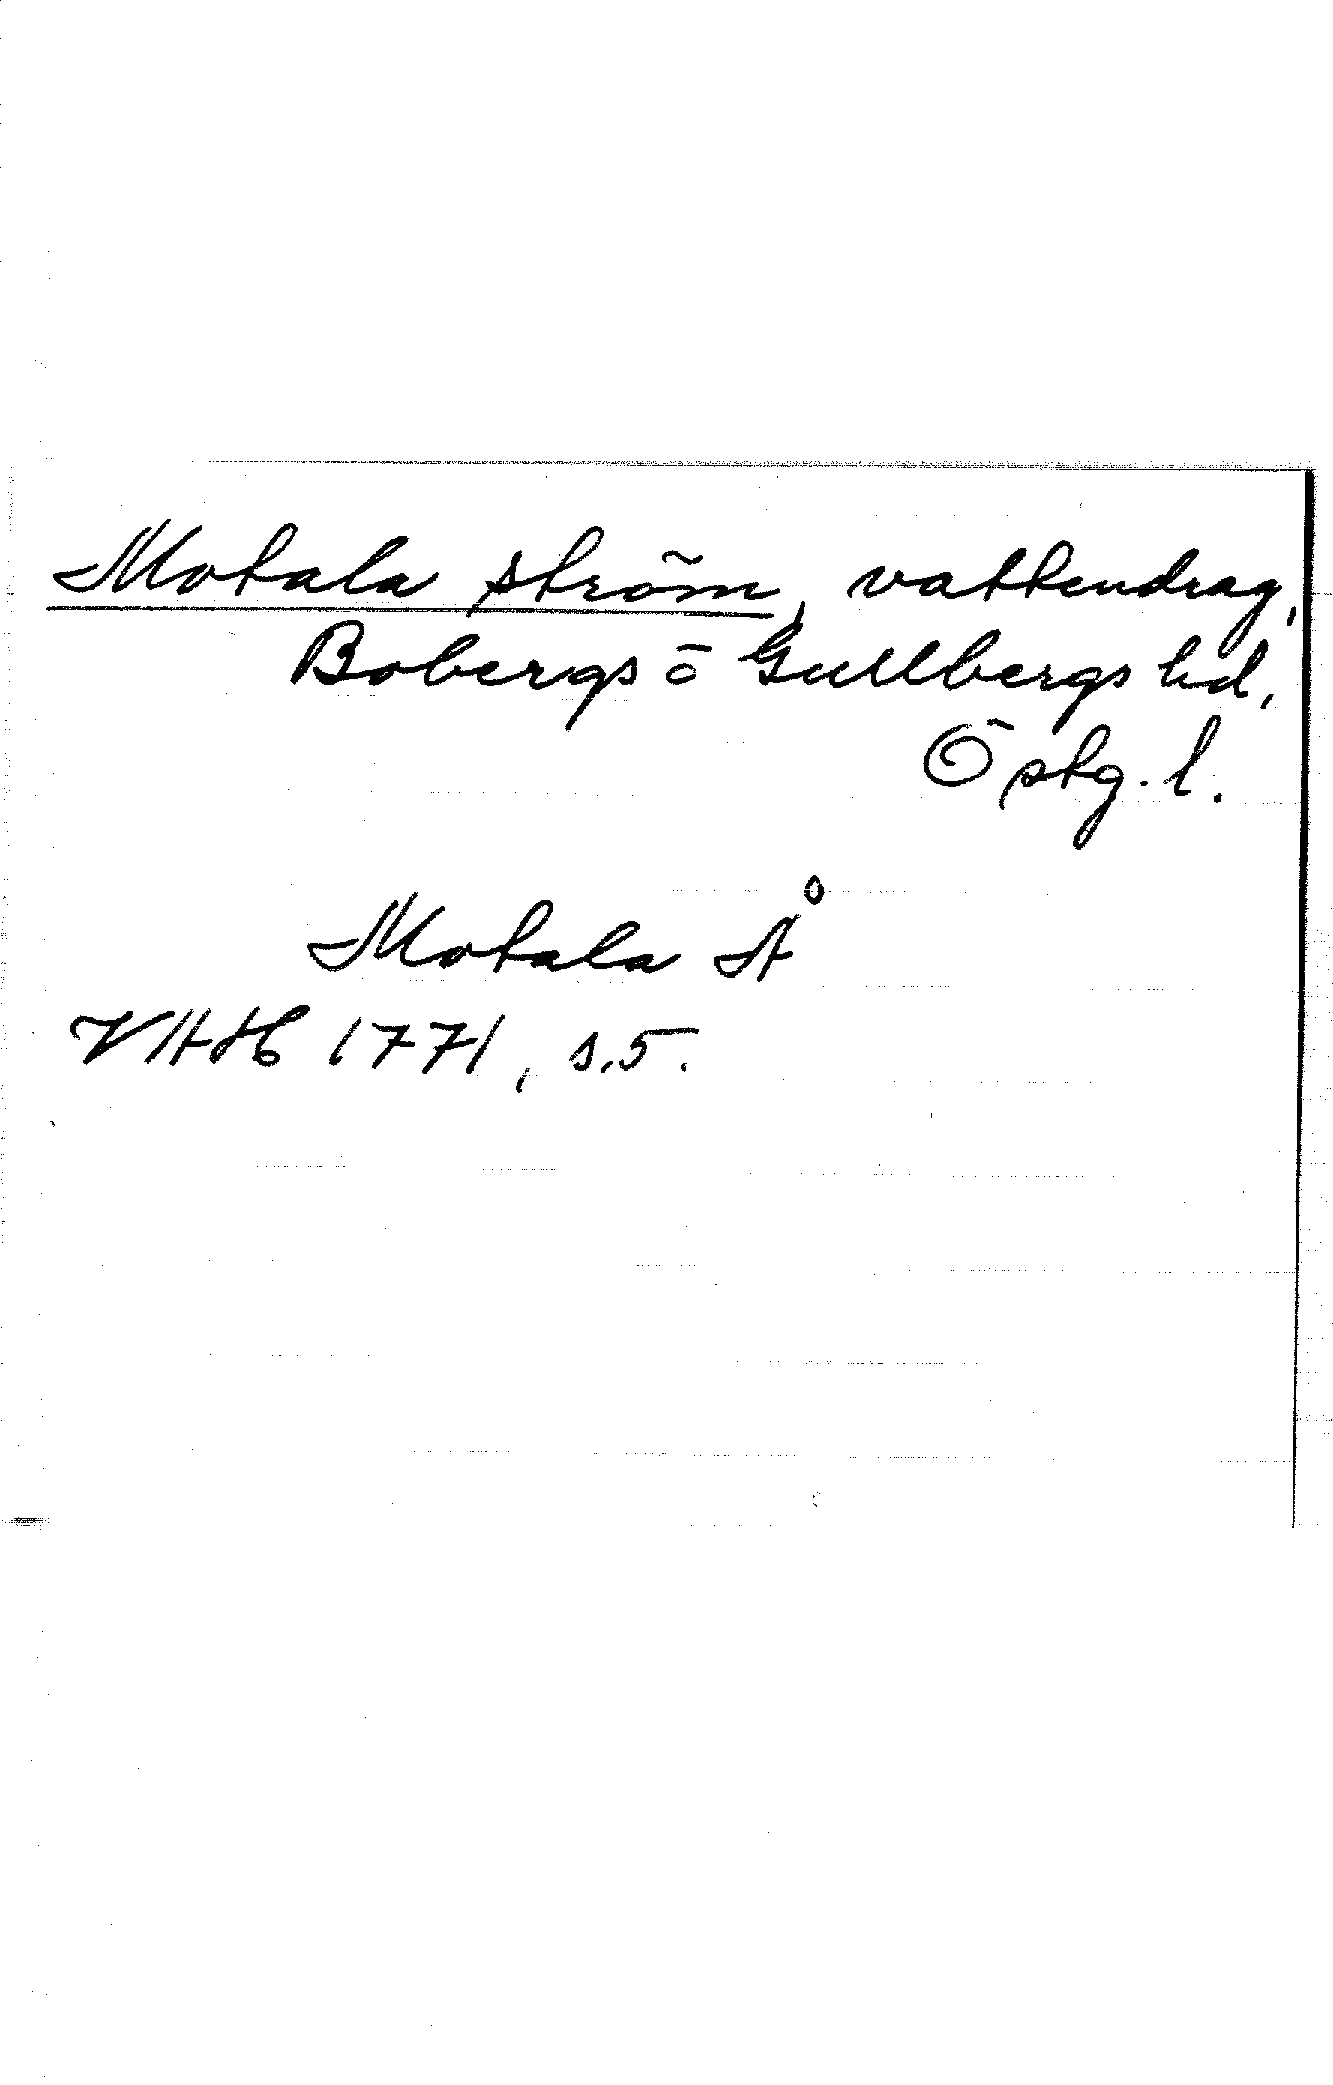 Motala ström, vattendrag,
Bobergs o Gullbergs hd,
Östg. l.
Motala Å
VHAH 1771, s.5.